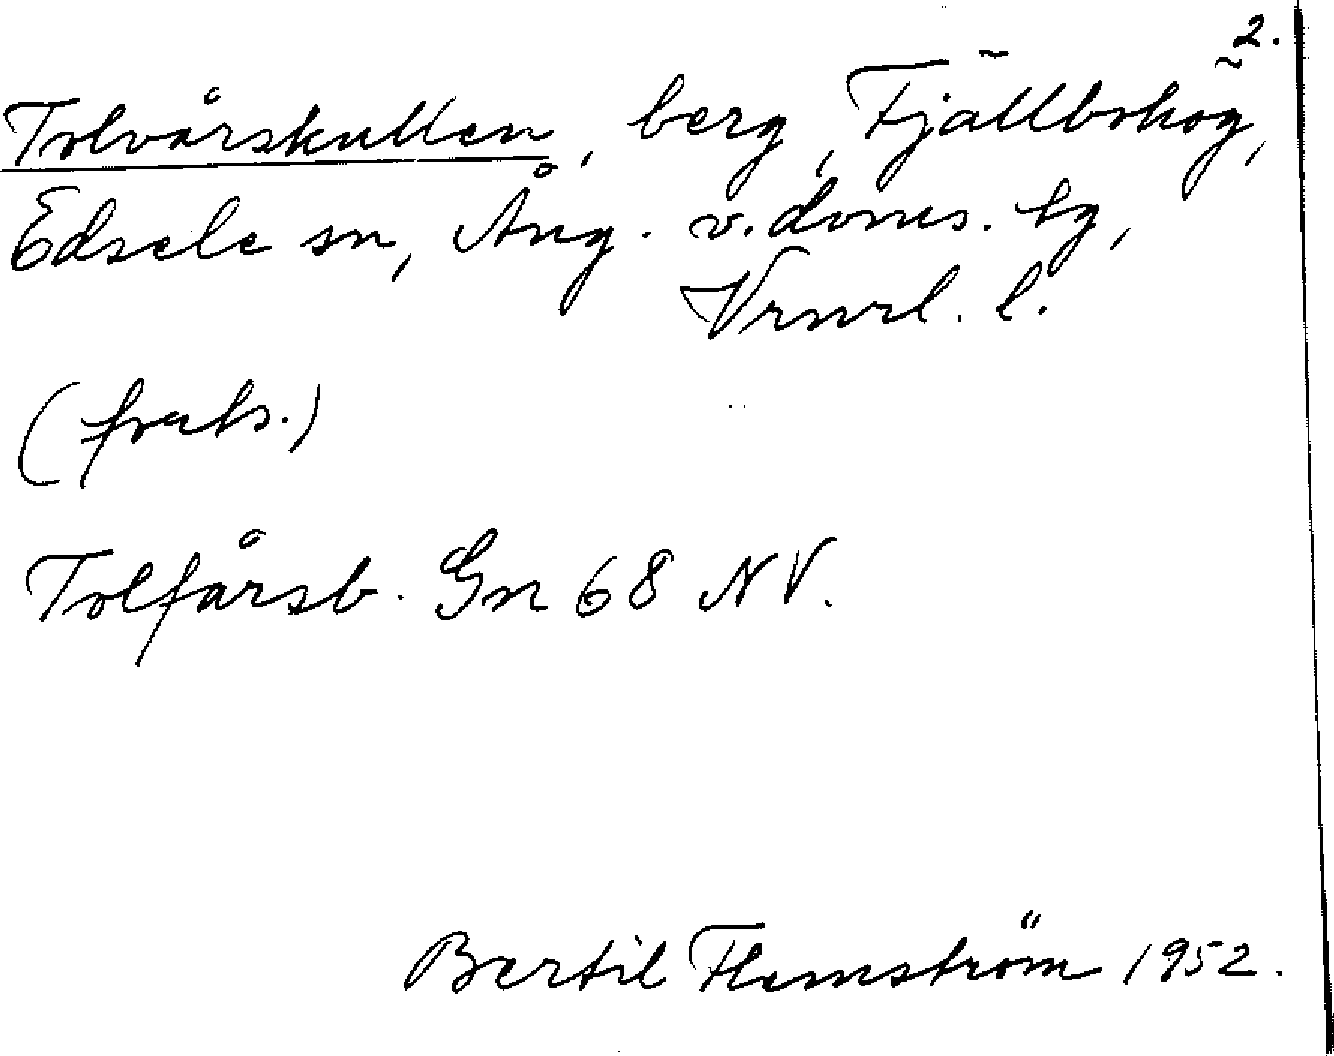 2.
Tolvårskullen, berg, Fjällbohög,
Edsele sn, Ång. v. doms. tg,
Vrnrl. l.
(forts.)
Tolfårsb. Gn 68 NV.
Bertil Flemström 1952.